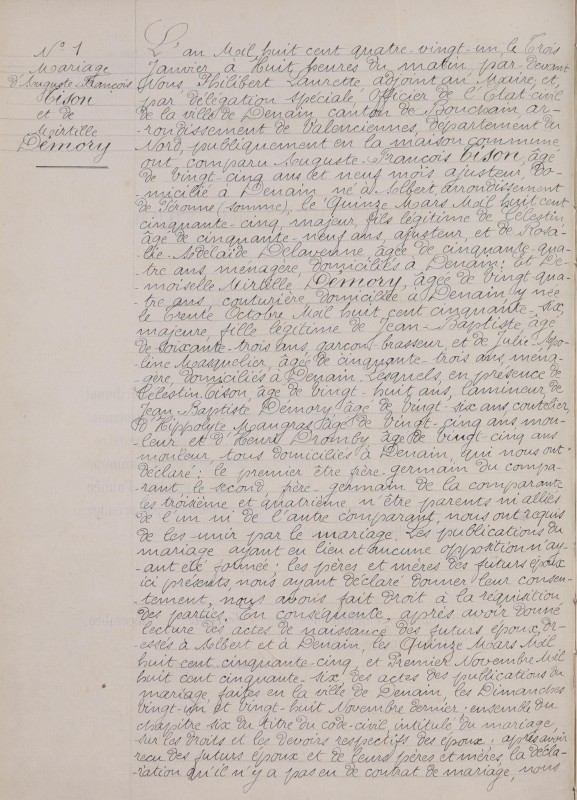 N° 1
Mariage
d'Auguste-François
Cison
et de
Mirtille
Demory
L'an Mil huit cent quatre-vingt-un, le Trois
Janvier à Huit heures du matin par-devant
Nous Philibert Laurette adjoint au Maire, et,
par délégation spéciale, Officier de l'Etat-civil
de la ville de Denain, canton de Bouchain ar-
rondissement de Valenciennes, département du
Nord, publiquement en la maison commune,
ont comparu Auguste-François Cison, âgé
de vingt-cinq ans et neuf mois, ajusteur, do-
micilié à Denain né à Albert, arrondissement
de Péronne (Somme), le Quinze Mars Mil huit cent
cinquante-cinq, majeur, fils légitime de Célestin
âgé de cinquante-neuf ans, ajusteur, et de Rosa-
lie-Adélaïde Delavenne, âgée de cinquante-qua-
tre ans, ménagère, domiciliés à Denain; et De-
moiselle Mirtille Demory, âgée de vingt-qua-
tre ans, couturière, domiciliée à Denain, y née
le trente Octobre Mil huit cent cinquante-six,
majeure, fille légitime de Jean-Baptiste, âgé
de soixante-trois ans, garçons-brasseur, et de Julie-Apo-
line Masquelier, âgée de cinquante-trois ans, ména-
gère, domiciliés à Denain. Lesquels, en présence de
Célestin Cison, âgé de vingt-huit ans, lamineur, de
Jean-Baptiste Demory, âgé de vingt-six ans, coutelier,
d'Hippolyte Maugras, âgé de vingt-cinq ans mou-
leur et d'Henri Dromby, âgé de vingt-cinq ans
mouleur, tous domiciliés à Denain, qui nous ont
déclaré: le premier être frère-germain du compa-
rant, le second, frère-germain de la comparante,
les troisième et quatrième n'être parents ni alliés
de l'un ni de l'autre comparant, nous ont requis
de les unir par le mariage. Les publications du
mariage ayant eu lieu et aucune opposition n'ay-
ant été formée; les pères et mères des futurs époux
ici présents, nous ayant déclaré donner leur consen-
tement, nous avons fait droit à la réquisition
des parties. En conséquence, après avoir donné
lecture des actes de naissance des futurs époux, dr-
essés à Albert et à Denain, les Quinze Mars Mil
huit cent cinquante-cinq, et Premier Novembre Mil
huit cent cinquante-six, des actes des publications du
mariage, faites en la ville de Denain, les Dimanches
vingt-un et vingt-huit Novembre dernier; ensemble du
chapitre six du titre du code-civil, intitulé du mariage,
sur les droits et les devoirs respectifs des époux; après avoir
reçu des futurs époux et de leurs pères et mères, la décla-
ration qu'il n'y a pas eu de contrat de mariage, nous